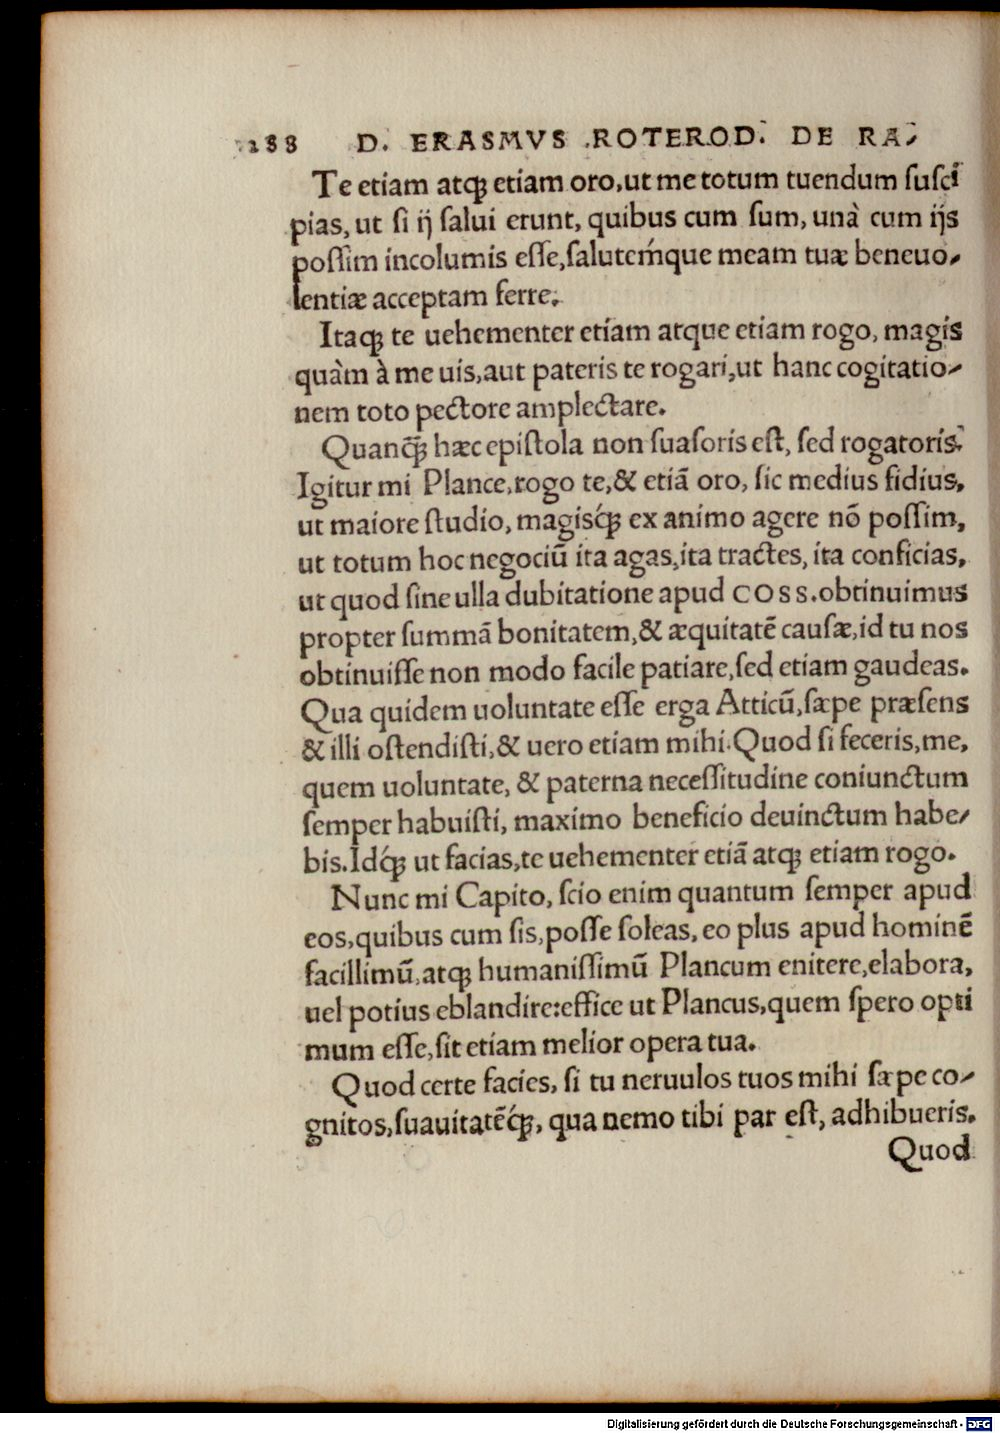 188 D. ERASMVS ROTEROD. DE RA⸗
Te etiam atqꝫ etiam oro, ut me totum tuendum ſuſci
pias, ut ſi ij ſalui erunt, quibus cum ſum, unà cum ijs
poſſim incolumis eſſe, ſalutémque meam tuæ beneuo⸗
lentiæ acceptam ferre.
Itaqꝫ te uehementer etiam atque etiam rogo, magis
quàm à me uis, aut pateris te rogari, ut hanc cogitatio⸗
nem toto pectore amplectare.
Quanq̃ꝫ hæc epiſtola non ſuaſoris eſt, ſed rogatoris.
Igitur mi Plance, rogo te, & etiã oro, ſic medius fidius,
ut maiore ſtudio, magisq́ꝫ ex animo agere nõ poſſim,
ut totum hoc negociũ ita agas, ita tractes, ita conficias,
ut quod ſine ulla dubitatione apud COSS. obtinuimus
propter ſummã bonitatem, & æquitatẽ cauſæ, id tu nos
obtinuiſſe non modo facile patiare, ſed etiam gaudeas.
Qua quidem uoluntate eſſe erga Atticũ, ſæpe præſens
& illi oſtendiſti, & uero etiam mihi. Quod ſi feceris, me,
quem uoluntate, & paterna neceſſitudine coniunctum
ſemper habuiſti, maximo beneficio deuinctum habe⸗
bis. Idq́ꝫ ut facias, te uehementer etiã atqꝫ etiam rogo.
Nunc mi Capito, ſcio enim quantum ſemper apud
eos, quibus cum ſis, poſſe ſoleas, eo plus apud hominẽ
facillimũ, atqꝫ humaniſſimũ Plancum enitere, elabora,
uel potius eblandire: effice ut Plancus, quem ſpero opti
mum eſſe, ſit etiam melior opera tua.
Quod certe facies, ſi tu neruulos tuos mihi ſæpe co⸗
gnitos, ſuauitatẽq́ꝫ, qua nemo tibi par eſt, adhibueris.
Quod
Digitalisierung gefördert durch die Deutsche Forschungsgemeinschaft - DFG